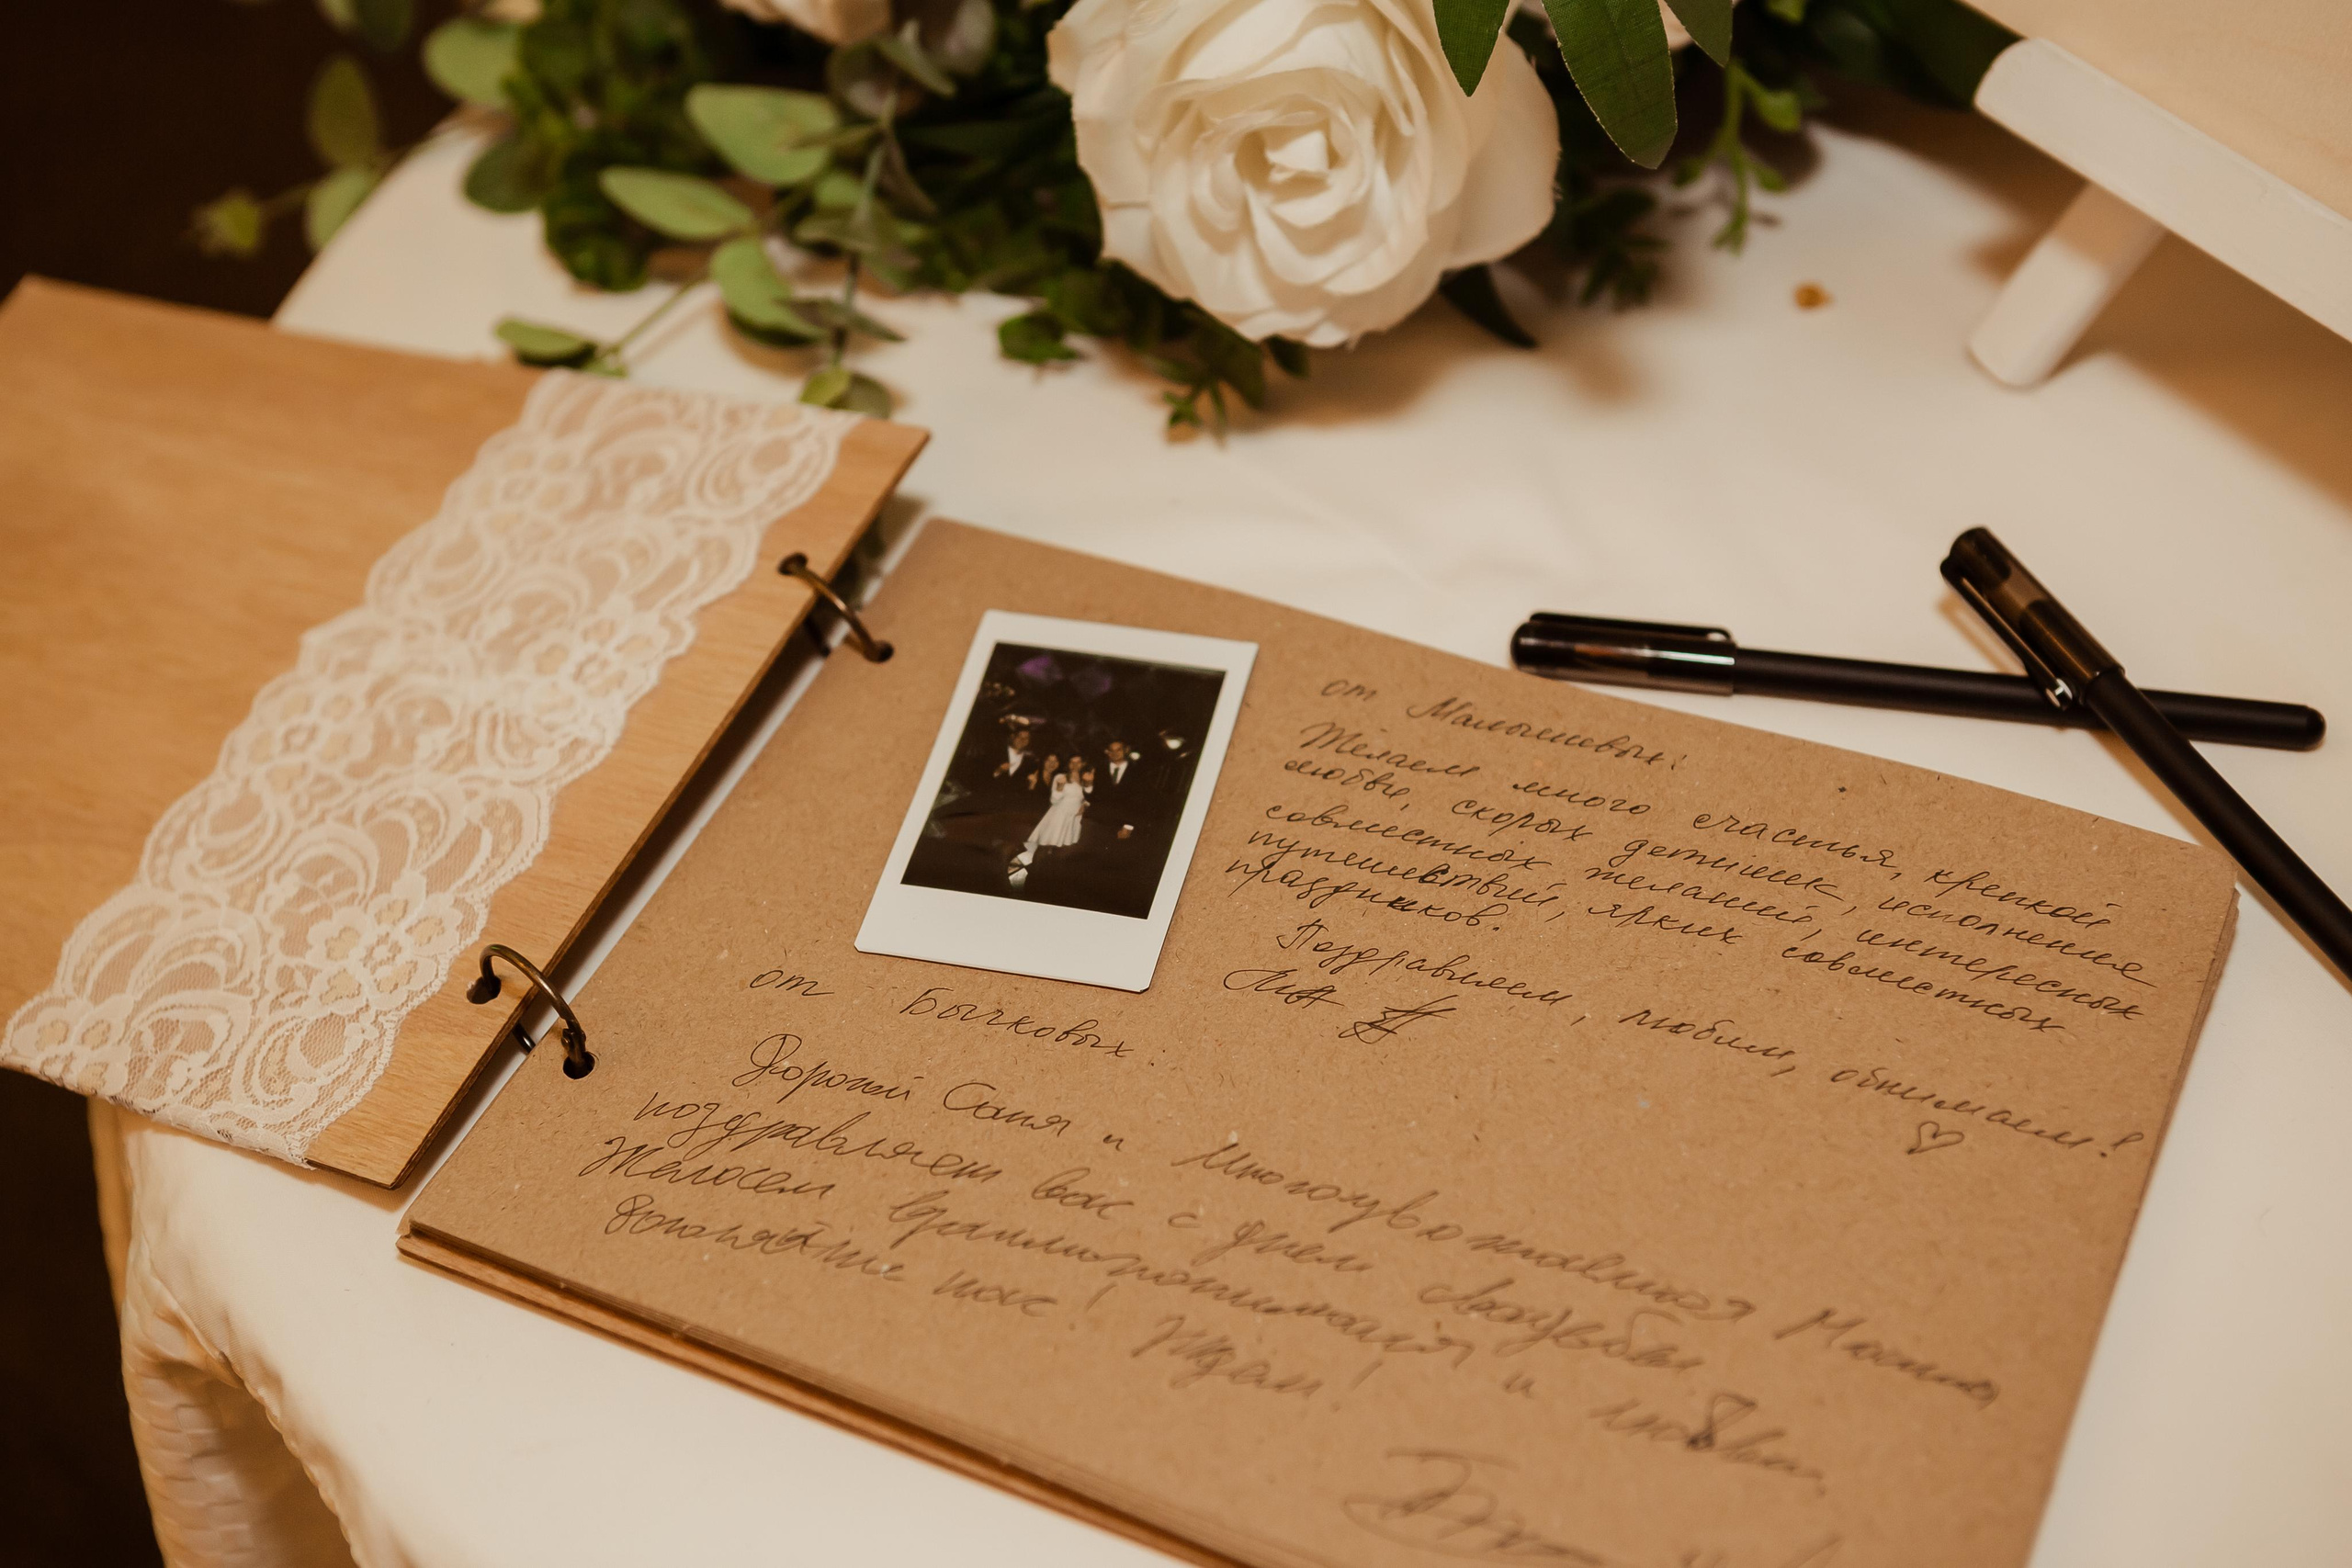 от Малышевых:
Желаем много счастья, крепкой
любви, скорых детишек, исполнения
совместных желаний, интересных
путешествий, ярких совместных
праздников.
Поздравляем, любим, обнимаем!
от Бычковых
Дорогой Саня и Многоуважаемая
поздравляем вас с днем свадьбы
Желаем взаимопонимания и любви,
догоняйте нас! Ждем!